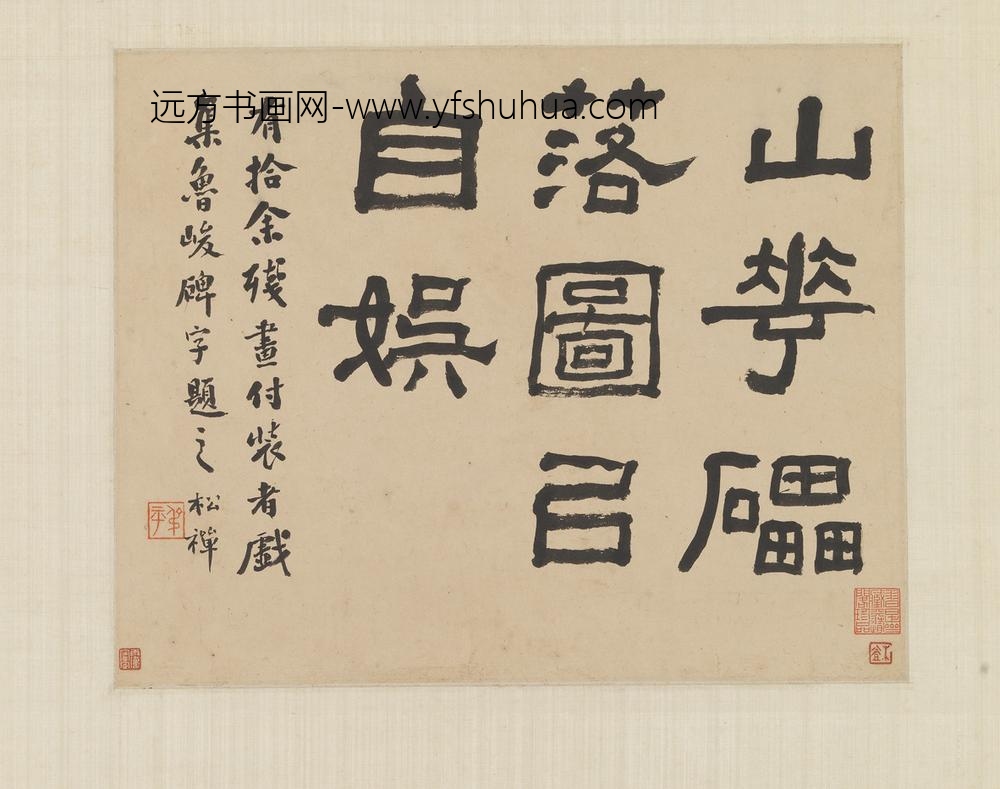 远方书画网-www.yfshuhua.com
山華礌
落圖㠯
自娛
有拾余殘畫付裝者戲
集魯峻碑字題之 松禪